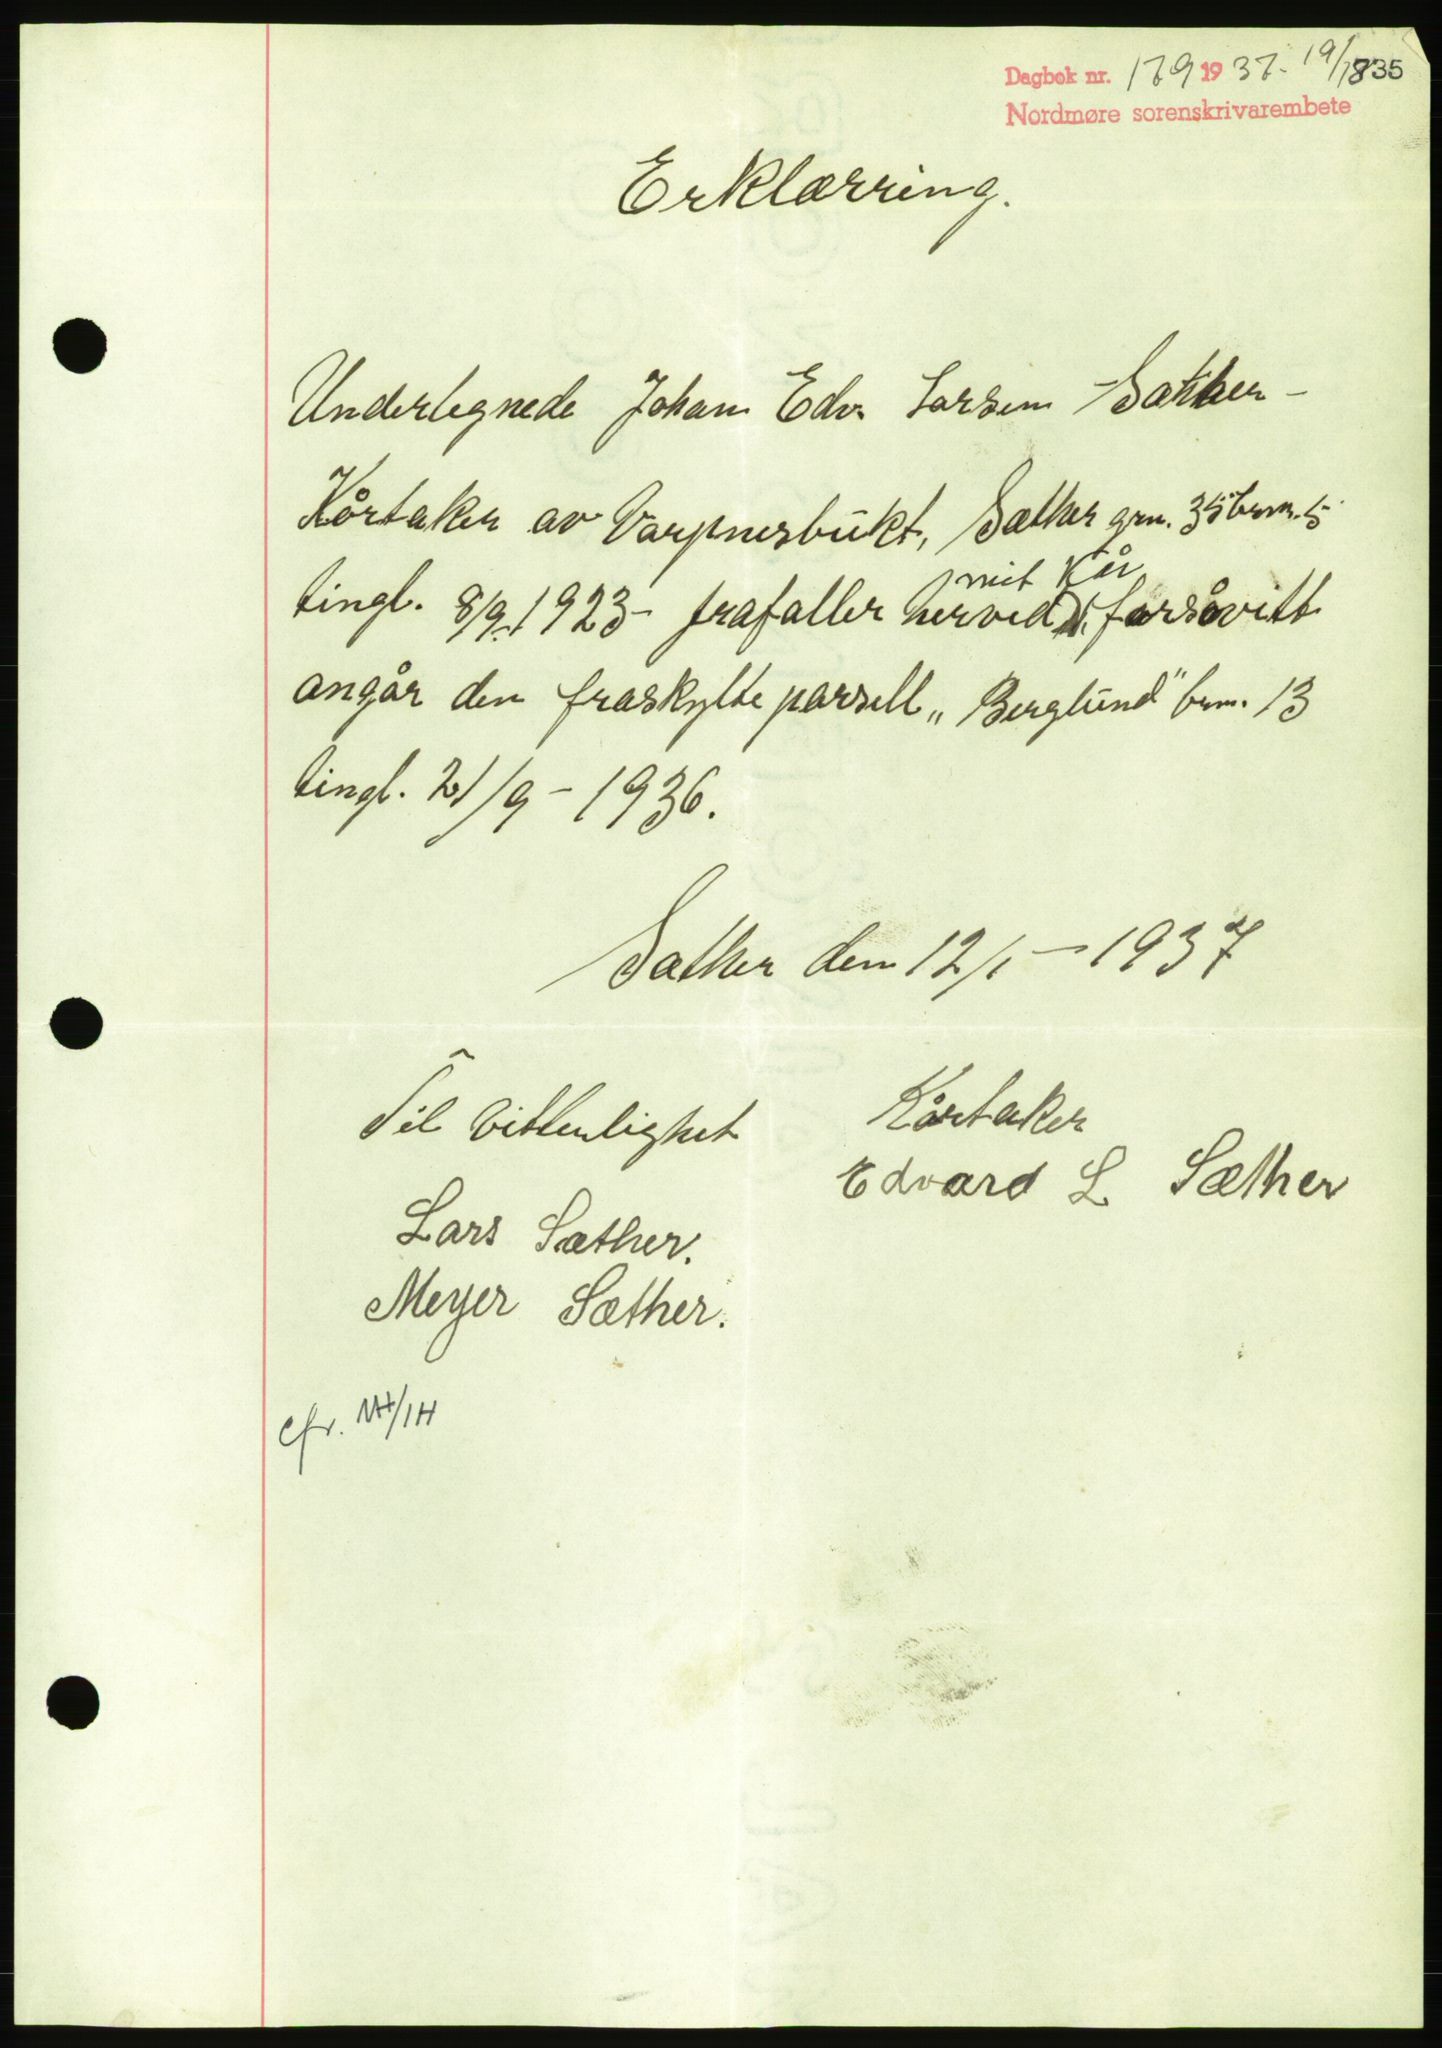 Dagbok nr. 179 1937. 19/1 835
Nordmøre sorenskrivarembete
Erklærring.
Undertegnede Johan Edv. Larsen Sæther –
Kårtaker av Varpnesbukt, Sæther grn. 35 brn. 5
tingl. 8/9. 1923 – frafaller herved mit Kår forsåvitt
angår den fraskylte parsell „Berglund" brn. 13
tingl. 21/9 – 1936.
Sæther den 12/1 – 1937
Til Vitterlighet
Lars Sæther.
Meyer Sæther.
Kårtaker
Edvard L Sæther
cfr. NH/IH